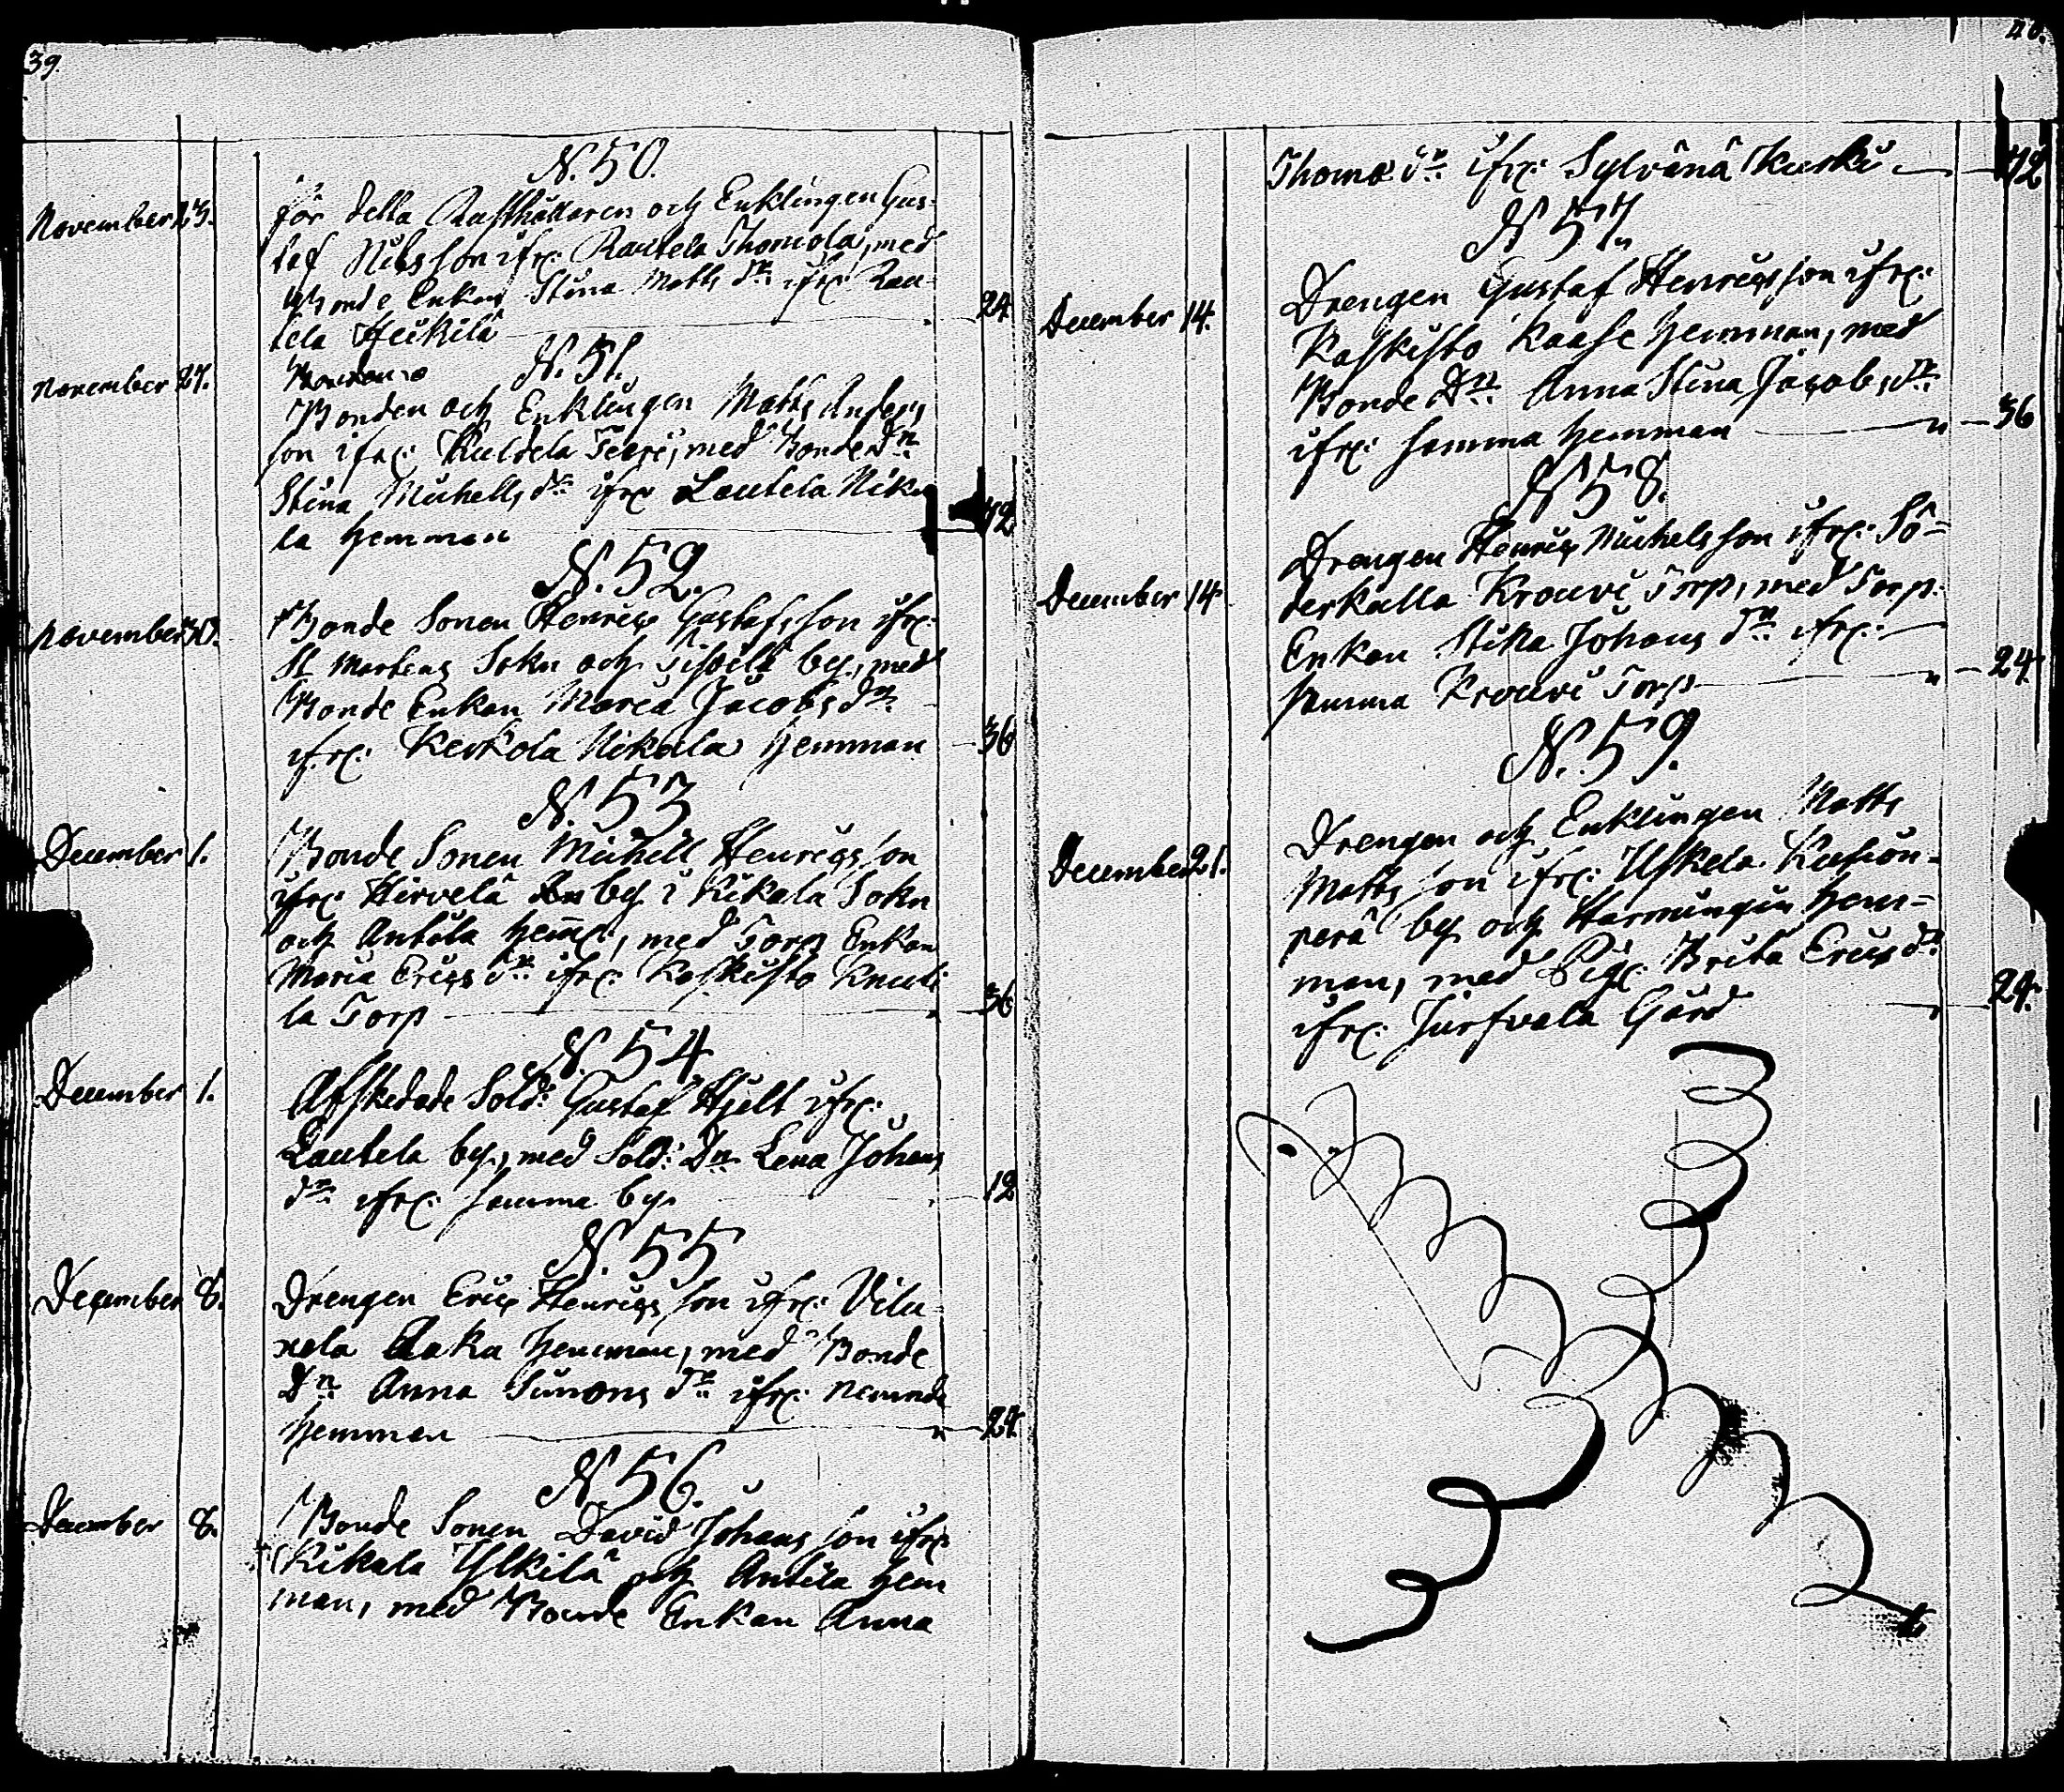 39.
N. 50.
November 23. för detta Rusthållaren och Enklingen Gus-
taf Nilsson ifr: Rautela Thomola, med
Bonde Enkan Stina Matts dr: ifr: Rau-
tela Heikilä 24
November 27. N. 51.
Bonden och Enklingen Matts Anders
son ifr: Kuldela Seppi, med Bonde Dr:
Stina Michells dr: ifr: Lautela Niku
la Hemman 72
N. 52.
November 30. Bonde Sonen Henric Gustafsson ifr:
St Martens Sokn och by, med
Bonde Enkan Maria Jacobs dr:
ifr: Kerkola Nikula Hemman 36
N. 53
December 1. Bonde Sonen Michell Henricsson
ifr: Hirvelä by i Kikala Sokn
och Antila hem:, med Torp Enkan
Maria Erics dr: ifr: Koskisto Knuti
la Torp 36
N. 54
December 1. Afskedade Sold: Gustaf Hjelt ifr:
Lautela by, med Sold: Dr: Lena Johans
dr: ifr: samma by 12
N. 55
December 8. Drengen Eric Henricsson ifr: Vilu-
xela Hemman, med Bonde
Dr: Anna Simons dr: ifr: nemnde
Hemman 24
N 56.
December 8. Bonde Sonen David Johansson ifr:
Kikala Ylkilä och Antila Hem
man, med Bonde Enkan Anna
40.
Thomæ dr: ifr: Sylvänä Kurki 72
N 57.
December 14. Drengen Gustaf Henricsson ifr:
Koskisto Kaase Hemman, med
Bonde Dr: Anna Stina Jacobs dr:
ifr: samma hemman 36
N 58.
December 14. Drengen Henric Michelsson ifr: Sö-
derkulla Krouvi Torp, med Torp-
Enkan Stina Johans dr: ifr:
samma Krouvi Torp 24.
N. 59.
December 21. Drengen och Enklingen Matts
Mattsson ifr: Uskela Kaukon-
perä by och Hem-
man, med Pig: Brita Erics dr:
ifr: Jurfvala Gård 24.